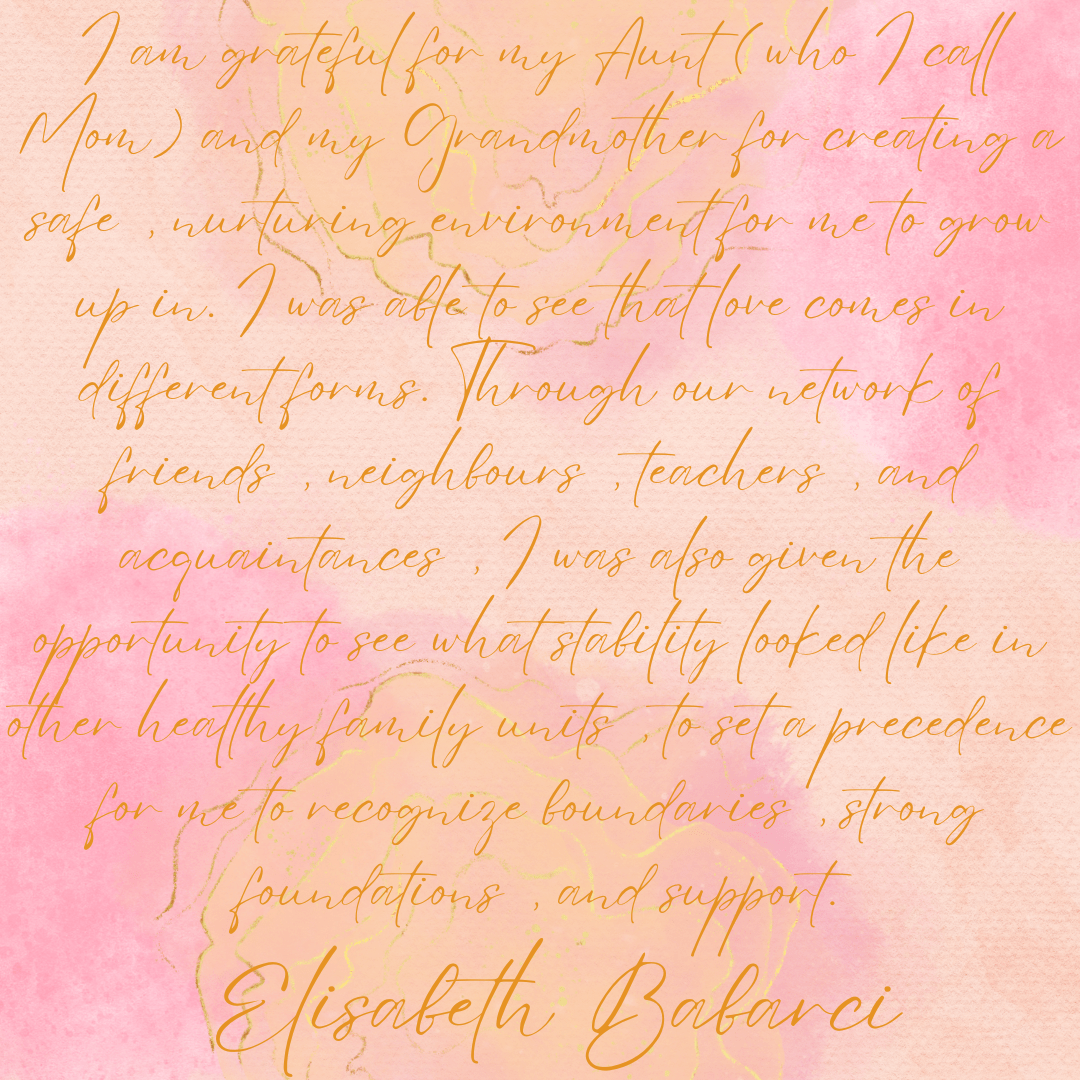 I am grateful for my Aunt ( who I call
Mom ) and my Grandmother for creating a
safe , nurturing environment for me to grow
up in. I was able to see that love comes in
different forms. Through our network of
friends , neighbours , teachers , and
acquaintances , I was also given the
opportunity to see what stability looked like in
other healthy family units , to set a precedence
for me to recognize boundaries , strong
foundations , and support.
Elisabeth Babarci